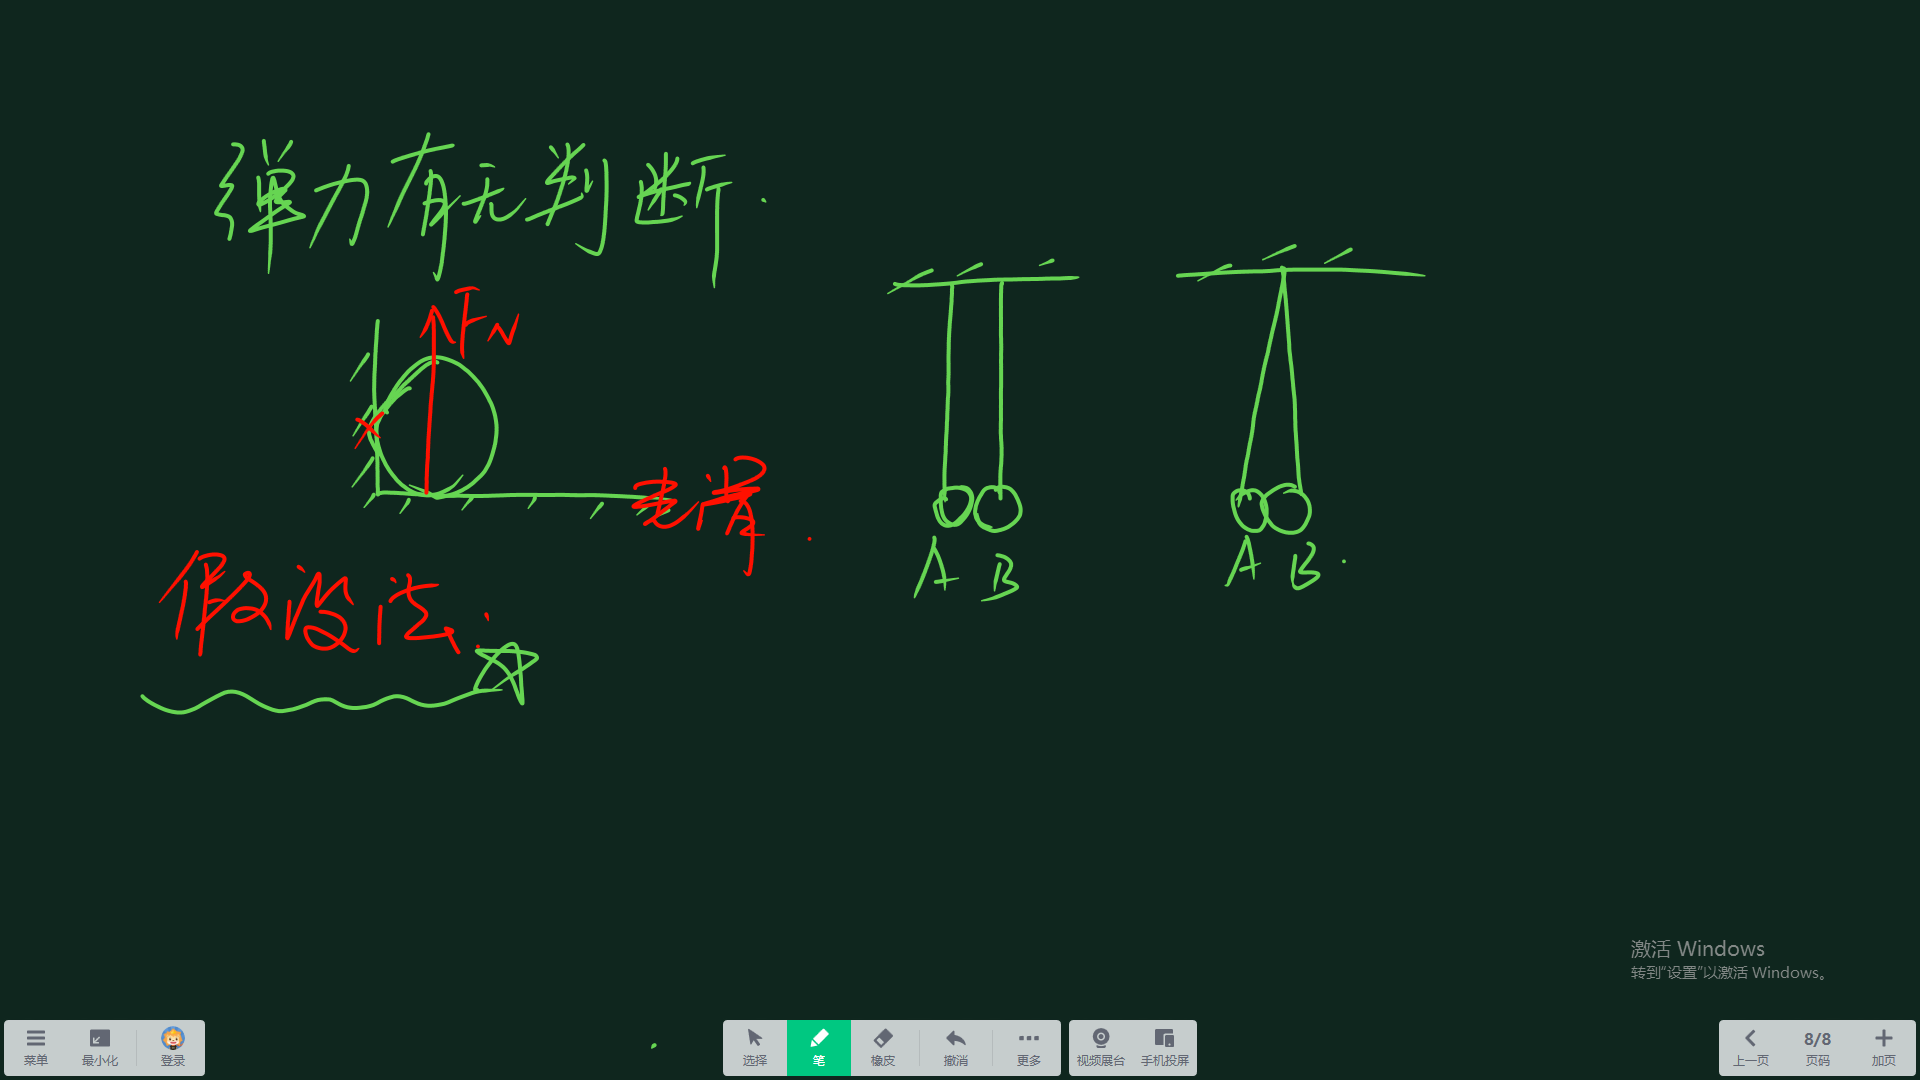 弹力有无判断.
FN
光滑.
假设法:
A B
A B.
激活 Windows
转到“设置”以激活 Windows。
菜单 最小化 登录 选择 笔 橡皮 撤消 更多 视频展台 手机投屏 上一页 8/8 页码 加页